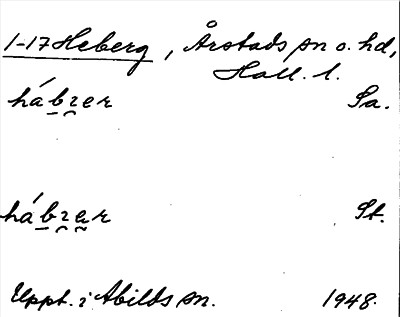 1-17 Heberg, Årstads sn o. hd,
Hall. l.
hábɿer Sa.
hábɿer St.
Uppt. i Abilds sn. 1948.